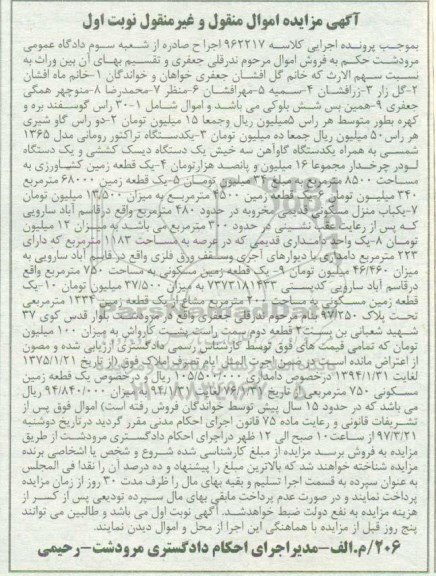 آگهی مزایده اموال منقول و غیرمنقول نوبت اول
بموجب پرونده اجرایی کلاسه ۹۶۲۲۱۷ اجرا ح صادره از شعبه سوم دادگاه عمومی
مرودشت حکم به فروش اموال مرحوم ندرقلی جعفری و تقسیم بهای آن بین وراث به
نسبت سهم الارث که خانم گل افشان جعفری خواهان و خواندگان ۱-خانم ماه افشان
۲-گل زار ۳-زرافشان ۴-سمیه ۵-مهرافشان ۶-منظر ۷-محمدرضا ۸-منوچهر همگی
جعفری ۹-همین بس شش بلوکی می باشد و اموال شامل ۱-۳۰ راس گوسفند بره و
کهره بطور متوسط هر راس ۵میلیون ریال وجمعا ۱۵ میلیون تومان ۲-دو راس گاو شیری
هر راس ۵۰ میلیون ریال جمعا ده میلیون تومان ۳-یکدستگاه تراکتور رومانی مدل ۱۳۶۵
شمسی به همراه یکدستگاه گاوآهن سه خیش یک دستگاه دیسک کششی و یک دستگاه
لودر چرخدار مجموعا ۱۶ میلیون و پانصد هزارتومان ۴-یک قطعه زمین کشاورزی به
مساحت ۸۵۰۰ مترمربع مبلغ ۳۴میلیون تومان ۵-یک قطعه زمین ۶۸۰۰۰ مترمربع
۳۴۰ میلیون تومان ۶-یک قطعه زمین ۴۵۰۰ مترمربع به میزان ۱۳/۵۰۰ میلیون تومان
۷-یکباب منزل سکونی قدیمی مخروبه در حدود ۴۸۰ مترمربع واقع درقاسم آباد سارویی
که پس از رعایت عقب نشینی در حدود ۳۰۰ مترمربع می باشد به میزان ۱۲ میلیون
تومان ۸-یک واحد دامداری قدیمی که در عرصه به مساحت ۱۱۸۳ مترمربع که دارای
۲۲۳ مترمربع دامداری با دیوارهای آجری وسقف ورق فلزی واقع در قاسم آباد سارویی به
میزان ۴۶/۴۶۰ میلیون تومان ۹- یک قطعه زمین مسکونی به مساحت ۷۵۰ مترمربع واقع
درقاسم آباد سارویی کدپستی ۷۳۷۳۱۸۱۴۳۳ به میزان ۳۷/۵۰۰ میلیون تومان ۱۰-یک
قطعه زمین مسکونی به مساحت ۲۰۰ مترمربع مشاع از یک قطعه زمین ۱۳۳۴ مترمربعی
تحت پلاک ۹۷/۲۵۰ بنام ندرقلی جعفری واقع در مرودشت بلوار قدس کوی ۳۷
شهید شعبانی بن بست۲ قطعه دوم سمت راست پشت کارواش به میزان ۱۰۰ میلیون
تومان که تمامی قیمت های فوق توسط کارشناس رسمی دادگستری ارزیابی شده و مصون
از اعتراض مانده است در ضمن اجرت المثل ایام تصرف املاک فوق (از تاریخ ۱۳۷۵/۱/۲۱
لغایت ۱۳۹۴/۱/۳۱ درخصوص دامداری ریال و درخصوص یک قطعه زمین
مسکونی ۷۵۰ مترمربعی از تاریخ میزان ۹۴/۸۴۰/۰۰۰ ریال
می باشد که در حدود ۱۵ سال پیش توسط خواندگان فروش رفته است) اموال فوق پس از
تشریفات قانونی و رعایت ماده ۷۵ قانون اجرای احکام مدنی مقرر گردید درتاریخ دوشنبه
۹۷/۳/۲۱ از ساعت۱۰ صبح الی ۱۲ ظهر دراجرای احکام دادگستری مرودشت از طریق
مزایده به فروش برسد مزایده از مبلغ کارشناسی شده شروع و شخص یا اشخاصی برنده
مزایده شناخته خواهند شد که بالاترین مبلغ را پیشنهاد و ده درصد آن را نقدا فی المجلس
به عنوان سپرده به قسمت اجرا تسلیم و بقیه بهای مال را ظرف مدت ۳۰ روز از زمان مزایده
پرداخت نمایند و در صورت عدم پرداخت مابقی بهای مال سپرده تودیعی پس از کسر از
هزینه مزایده به نفع دولت ضبط خواهدشد. آگهی نوبت اول می باشد و طالبین می توانند
پنج روز قبل از مزایده با هماهنگی این اجرا از محل و اموال دیدن نمایند.
۲۰۶/م.الف-مدیراجرای احکام دادگستری مرودشت-رحیمی